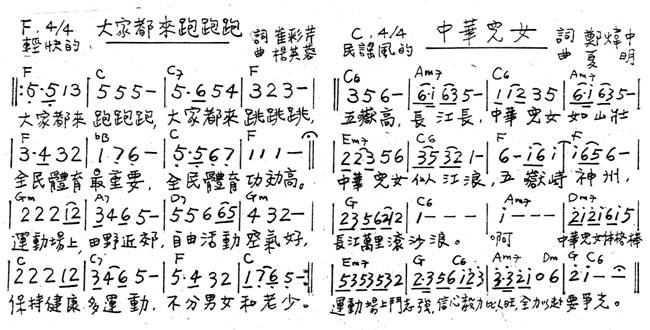 F. 4/4
輕快的
大家都來跑跑跑
詞 崔彩芹
曲 楊英蓉
F C C7 F
‖: 5·5 1 3 | 5 5 5 - | 5·6 5 4 | 3 2 3 - |
大家都來跑跑跑，大家都來跳跳跳，
F bB C F
3·4 3 2 | 1 7 6 - | 5·5 6 7 | 1 1 1 - ‖
全民體育最重要，全民體育功効高。
Gm A7 D7 Gm
| 2 2 2 12 | 3 4 6 5 - | 5 5 6 65 | 4 3 2 - |
運動場上，田野近郊，自由活動空氣好，
C C7 F C
| 2 2 2 12 | 3 4 6 5 - | 5·4 3 2 | 1 7 6 5 - :‖
保持健康多運動，不分男女和老少。
C. 4/4
民謠風的
中華兒女
詞 鄭煒中
曲 夏明
C6 Am7 C6 Am7
| 3 5 6 - | 6·i 63 5 - | 1 12 3 5 | 6·i 63 5 - |
五嶽高，長江長，中華兒女如山壯
Em7 C6 F F
| 2 23 5 6 | 35 32 1 - | 6 - i6 i | i65 6 - |
中華兒女似江浪，五嶽峙神州，
G C6 Am7 Dm7
| 1 - - - | i - - - |
長江萬里滾沙浪。啊 中華兒女体格棒
Em7 G C6 Am7 Dm G C6
運動場上鬥志強，信心毅力比人旺，全力以赴要爭光。